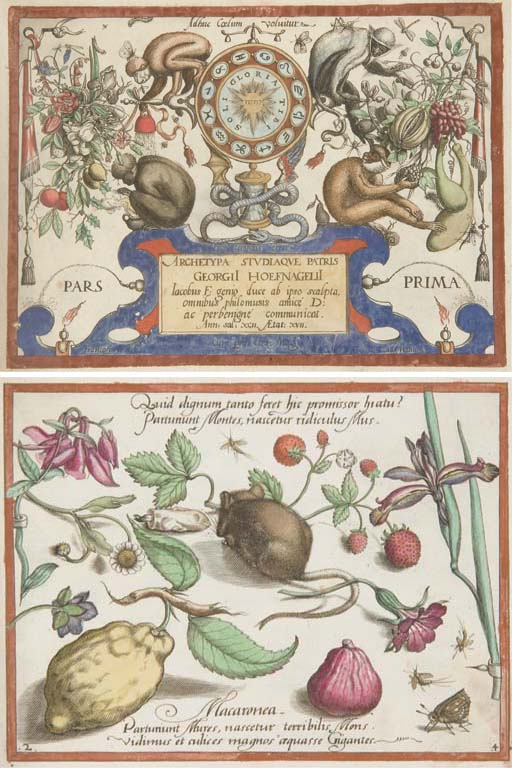 Adhuc Cœlum volvitur
SOLI GLORIA TRI
PARS
PRIMA
ARCHETYPA STVDIAQVE PATRIS
GEORGII HOEFNAGELII
Iacobus F: genio duce ab ipso scalpta,
omnibus philomusis amicè D:
ac perbenignè communicat.
Ann. sal. XCII. Ætat: XVII.
Quid dignum tanto feret hic promissor hiatu?
Parturiunt Montes, nascetur ridiculus Mus.
Macaronea.
Parturiunt Mures, nascetur terribilis Mons.
Vidimus et culices magnos æquasse Gigantes.
2
4